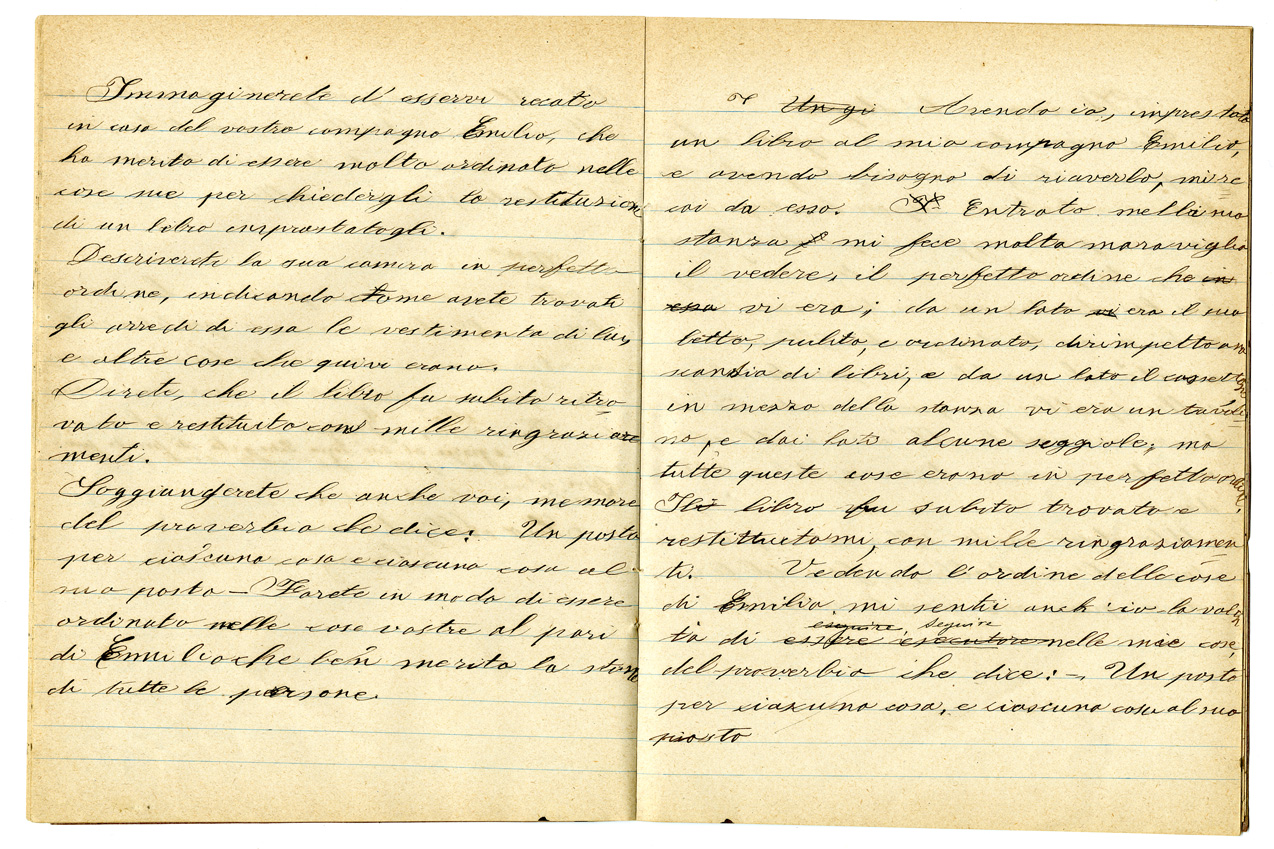 Immaginerete d'esservi recato
in casa del vostro compagno Emilio, che
ha merito di essere molto ordinato nelle
cose sue per chiedergli la restituzione
di un libro imprestatogli.
Descriverete la sua camera in perfetto
ordine, indicando come avete trovati
gli arredi di essa le vestimenta di lui,
e altre cose che quivi erano.
Direte, che il libro fu subito ritro
vato e restituito con mille ringrazia
menti.
Soggiungerete che anche voi, memore
del proverbio che dice: Un posto
per ciascuna cosa e ciascuna cosa al
suo posto – Farete in modo di essere
ordinato nelle cose vostre al pari
di Emilio che ben merita la stima
di tutte le persone.
Un gi Avendo io, imprestato
un libro al mio compagno Emilio,
e avendo bisogno di riaverlo, mi re
cai da esso. Entrato nella sua
stanza mi fece molta maraviglia
il vedere, il perfetto ordine che in
essa vi era; da un lato vi era il suo
letto, pulito, e ordinato, dirimpetto una
scansia di libri, e da un lato il cassettone
in mezzo della stanza vi era un tavoli
no, e dai lati alcune seggiole; ma
tutte queste cose erano in perfetto ordine.
Il libro fu subito trovato e
restituitomi, con mille ringraziamen
ti. Vedendo l'ordine delle cose
di Emilio, mi sentii anch'io la volon
eseguire, seguire
tà di essere esecutore nelle mie cose,
del proverbio che dice: –. Un posto
per ciascuna cosa, e ciascuna cosa al suo
posto